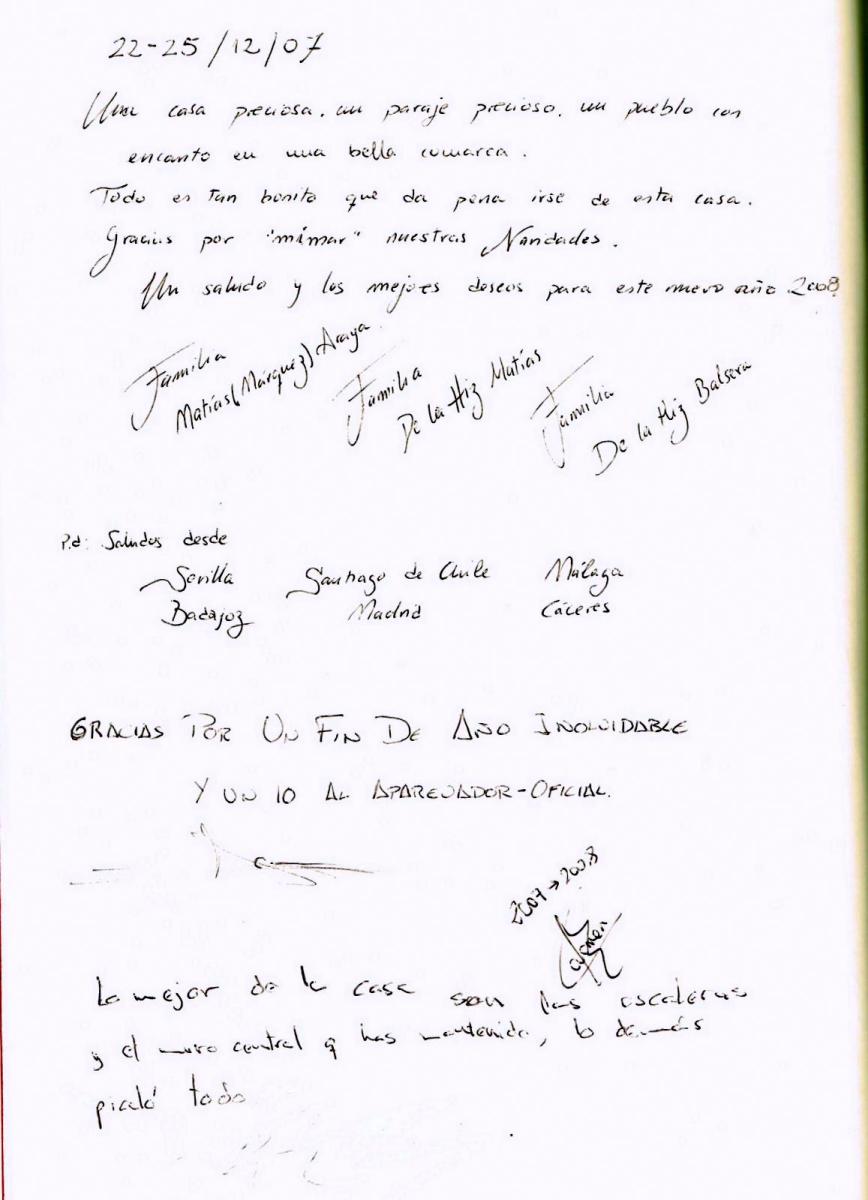 22-25/12/07
Una casa preciosa, un paraje precioso, un pueblo con
encanto en una bella comarca.
Todo es tan bonito que da pena irse de esta casa.
Gracias por "mimar" nuestras Navidades.
Un saludo y los mejores deseos para este nuevo año 2008
Familia
Matías(Márquez)-Araya.
Familia
De la Hiz Matías
Familia
De la Hiz Balsera
P.d: Saludos desde
Sevilla Santiago de Chile Málaga
Badajoz Madrid Cáceres
GRACIAS POR UN FIN DE AÑO INOLVIDABLE
Y UN 10 AL APAREJADOR-OFICIAL.
2007→2008
Carmen
Lo mejor de la casa son las escaleras
y el muro central q has mantenido, lo demás
todo